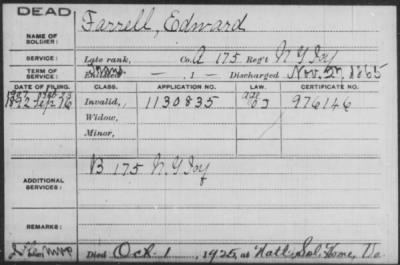 DEAD
NAME OF SOLDIER: Farrell, Edward
SERVICE: Late rank, Co. A 175 Reg't N Y Inf
TERM OF SERVICE: Enlisted — , 1 — Discharged Nov. 1865
DATE OF FILING. CLASS. APPLICATION NO. LAW. CERTIFICATE NO.
1892 Sep 26 Invalid, 1130835 976146
Widow,
Minor,
ADDITIONAL SERVICES: B 175 N Y Inf
REMARKS:
Died Oct. 1, 1925, at Natl. Sol. Home, Va